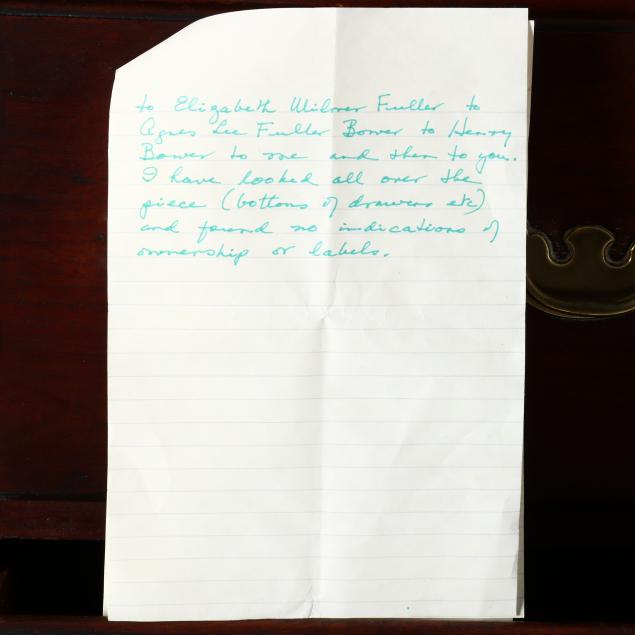 to Elizabeth Milner Fuller to
Agnes Lee Fuller Bower to Henry
Bower to me and then to you.
I have looked all over the
piece (bottoms of drawers etc)
and found no indications of
ownership or labels.